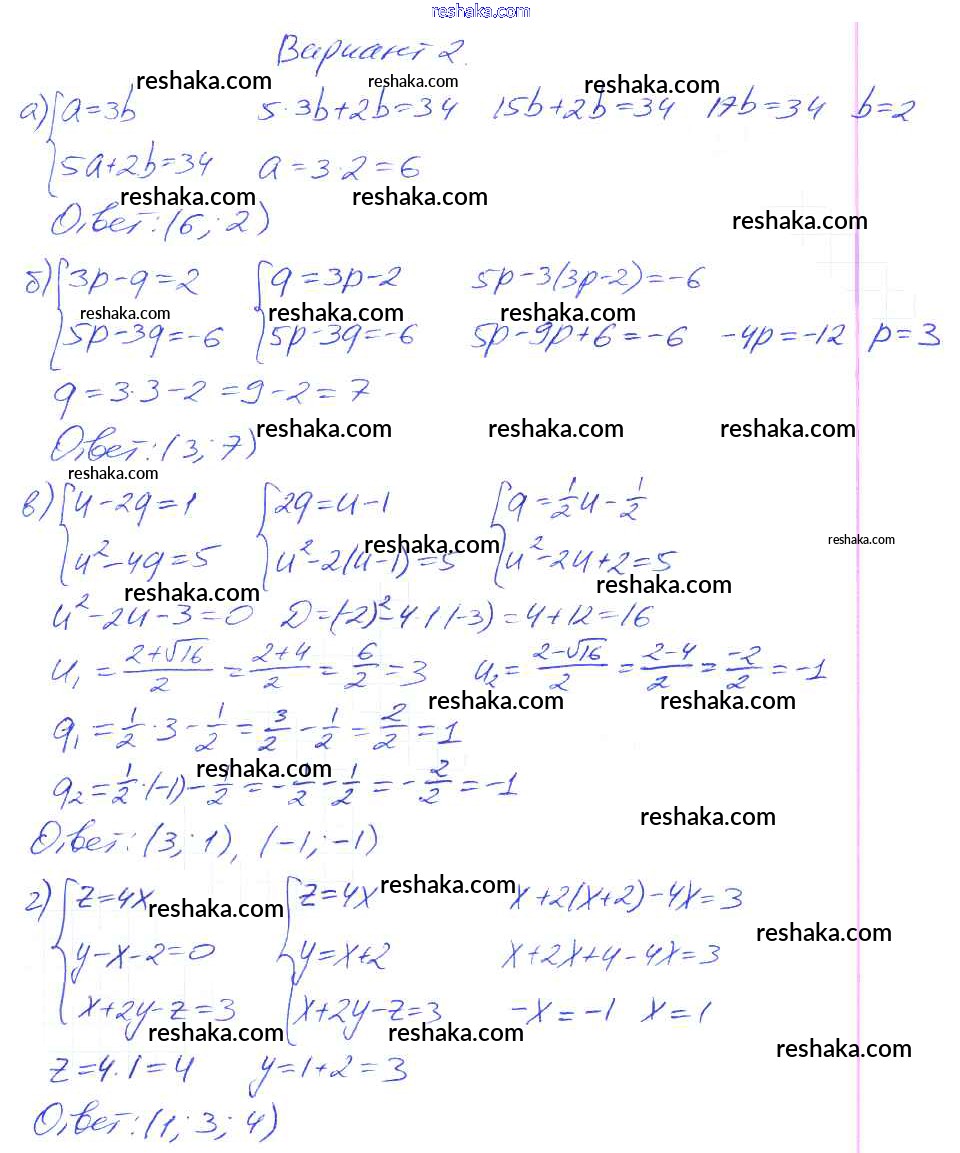 reshaka.com
Вариант 2.
reshaka.com reshaka.com reshaka.com
а) { a=3b 5·3b+2b=34 15b+2b=34 17b=34 b=2
5a+2b=34 a=3·2=6
reshaka.com reshaka.com
Ответ: (6; 2) reshaka.com
б) { 3p-q=2 { q=3p-2 5p-3(3p-2)=-6
reshaka.com reshaka.com reshaka.com
5p-3q=-6 5p-3q=-6 5p-9p+6=-6 -4p=-12 p=3
q=3·3-2=9-2=7
reshaka.com reshaka.com reshaka.com
Ответ: (3; 7)
reshaka.com
в) { u-2q=1 { 2q=u-1 { q=1/2u-1/2
reshaka.com reshaka.com
u²-4q=5 u²-2(u-1)=5 u²-2u+2=5
reshaka.com reshaka.com
u²-2u-3=0 D=(-2)²-4·(-3)=4+12=16
u₁=(2+√16)/2=(2+4)/2=6/2=3 u₂=(2-√16)/2=(2-4)/2=-2/2=-1
reshaka.com reshaka.com
q₁=1/2·3-1/2=3/2-1/2=2/2=1
reshaka.com
q₂=1/2·(-1)-1/2=-1/2-1/2=-2/2=-1
reshaka.com
Ответ: (3; 1), (-1; -1)
г) { z=4x { z=4x x+2(x+2)-4x=3
reshaka.com reshaka.com reshaka.com
y-x-2=0 y=x+2 x+2x+4-4x=3
x+2y-z=3 x+2y-z=3 -x=-1 x=1
reshaka.com reshaka.com reshaka.com
z=4·1=4 y=1+2=3
Ответ: (1; 3; 4)